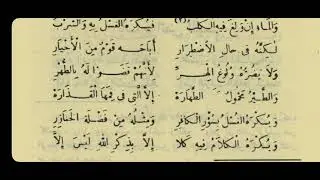 وَالْمَاءِ إِنْ وَلَغَ فِيهِ الْكَلْبُ (٢) فَيُكْرَهُ الْغُسْلُ بِهِ وَالشُّرْبُ
لَكِنَّهُ فِي حَالِ الْاضْطِرَارِ أَبَاحَهُ قَوْمٌ مِنَ الْأَخْيَارِ
وَلَا يَضُرُّهُ وُلُوغُ الْهِرِّ لِأَنَّهُمْ قَضَوْا لَهُ بِالطُّهْرِ
وَالطَّيْرُ مَحْمُولٌ الطَّهَارَهْ إِلَّا الَّتِي فِي فِيهَا الْقَذَارَهْ
وَيُكْرَهُ الْغُسْلُ بِسُؤْرِ الْكَافِرِ وَمِثْلُهُ مِنْ فَضْلَةِ الْخَنَازِرِ
وَيُكْرَهُ الْكَلَامُ فِيهِ كَلَّا إِلَّا بِذِكْرِ اللَّهِ لَيْسَ إِلَّا